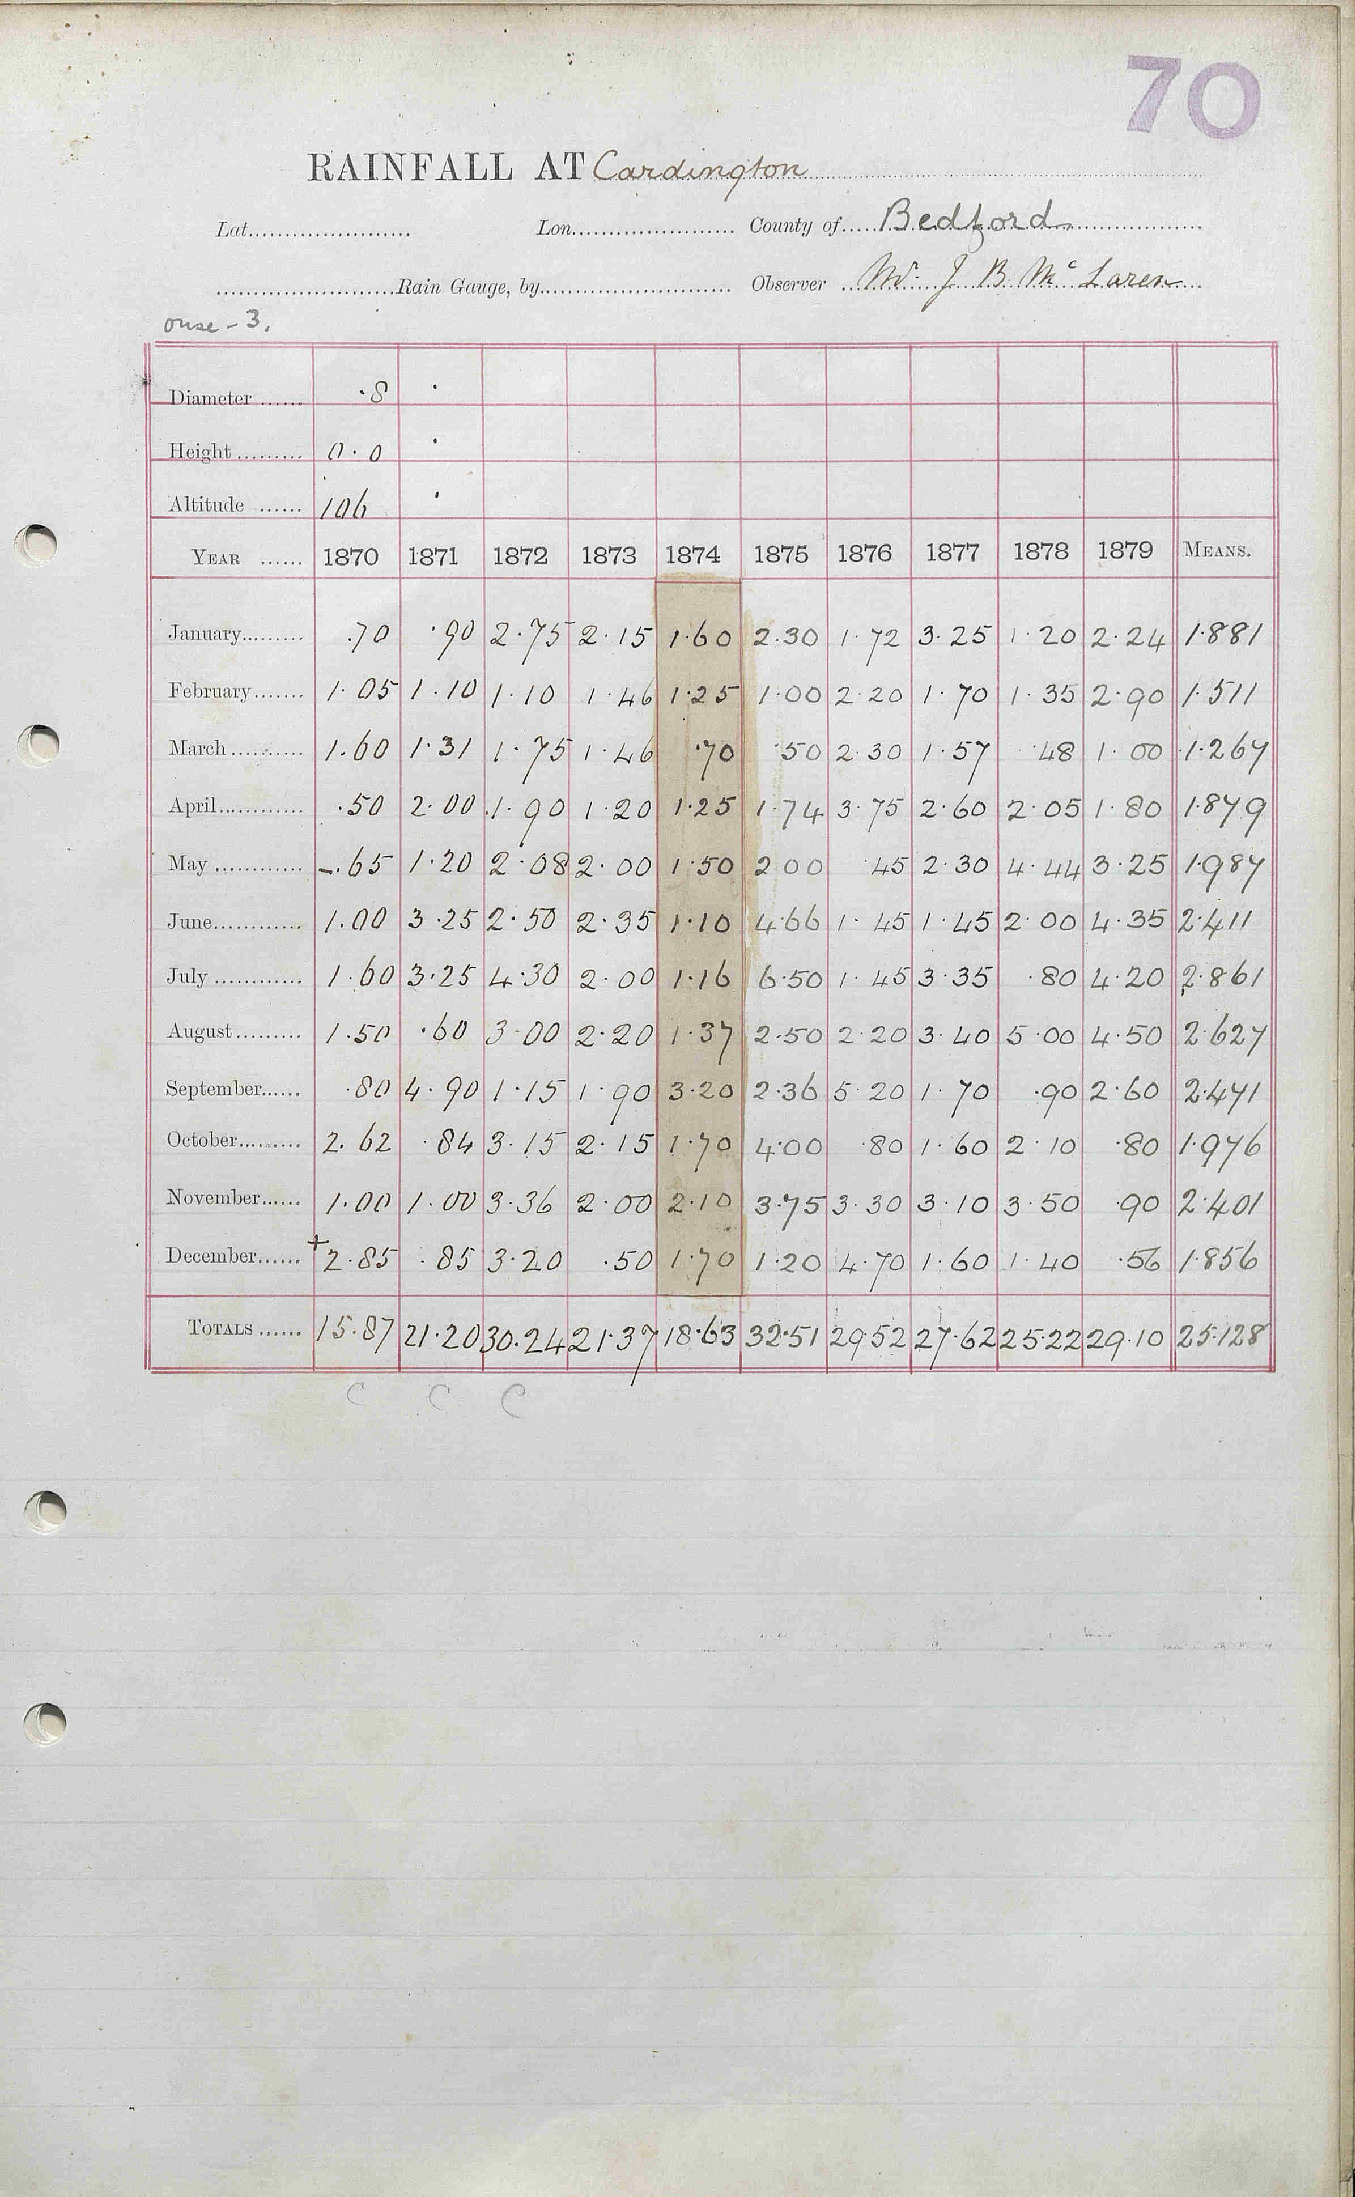 70
RAINFALL AT Cardington
Lat. Lon. County of Bedford
Rain Gauge, by Observer Mr. J B McLaren
ouse - 3.
Diameter ·8 ·
Height 0·0 ·
Altitude 106 ·
YEAR 1870 1871 1872 1873 1874 1875 1876 1877 1878 1879 MEANS.
January ·70 ·90 2·75 2·15 1·60 2·30 1·72 3·25 1·20 2·24 1·881
February 1·05 1·10 1·10 1·46 1·25 1·00 2·20 1·70 1·35 2·90 1·511
March 1·60 1·31 1·75 1·46 ·70 ·50 2·30 1·57 ·48 1·00 1·267
April ·50 2·00 1·90 1·20 1·25 1·74 3·75 2·60 2·05 1·80 1·879
May ·65 1·20 2·08 2·00 1·50 2·00 45 2·30 4·44 3·25 1·987
June 1·00 3·25 2·50 2·35 1·10 4·66 1·45 1·45 2·00 4·35 2·411
July 1·60 3·25 4·30 2·00 1·16 6·50 1·45 3·35 ·80 4·20 2·861
August 1·50 ·60 3·00 2·20 1·37 2·50 2·20 3·40 5·00 4·50 2·627
September ·80 4·90 1·15 1·90 3·20 2·36 5·20 1·70 ·90 2·60 2·471
October 2·62 ·84 3·15 2·15 1·70 4·00 ·80 1·60 2·10 ·80 1·976
November 1·00 1·00 3·36 2·00 2·10 3·75 3·30 3·10 3·50 ·90 2·401
December +2·85 ·85 3·20 ·50 1·70 1·20 4·70 1·60 1·40 ·56 1·856
TOTALS 15·87 21·20 30·24 21·37 18·63 32·51 29·52 27·62 25·22 29·10 25·128
C C C